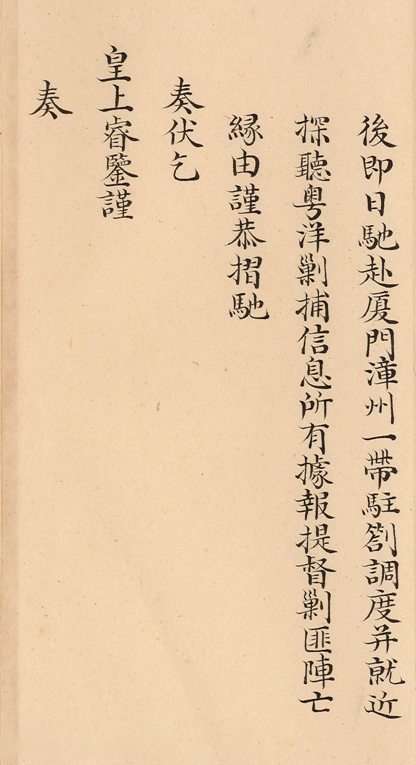 後即日馳赴廈門漳州一帶駐劄調度并就近
探聽粤洋剿捕信息所有據報提督剿匪陣亡
緣由謹恭摺馳
奏伏乞
皇上睿鑒謹
奏